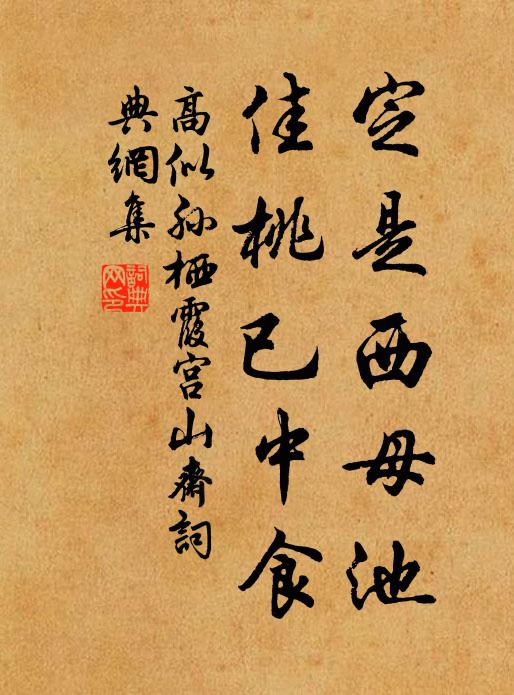 定是西母池
佳桃已中食
高似孙栖霞宫山斋詞
典網集
詞典
网印